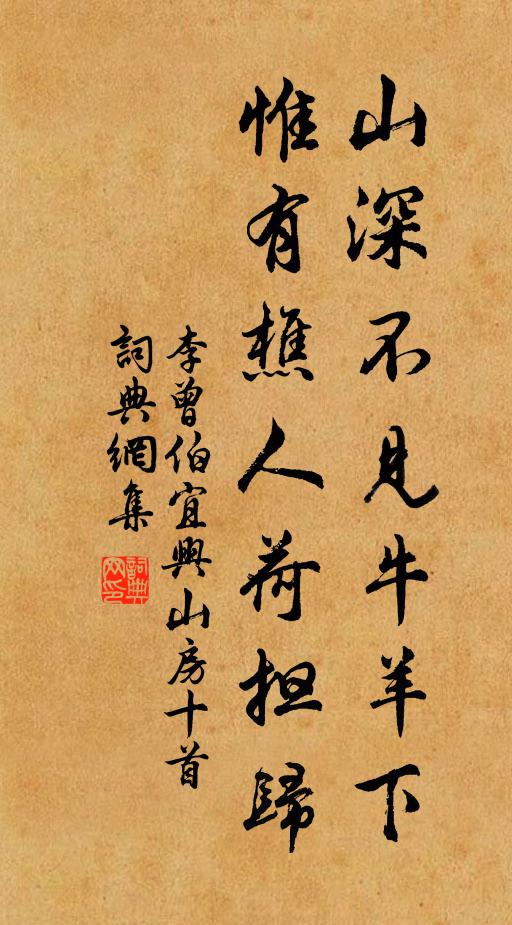 山深不見牛羊下
惟有樵人荷担歸
李曾伯宜興山房十首
詞典網集
詞典
网印